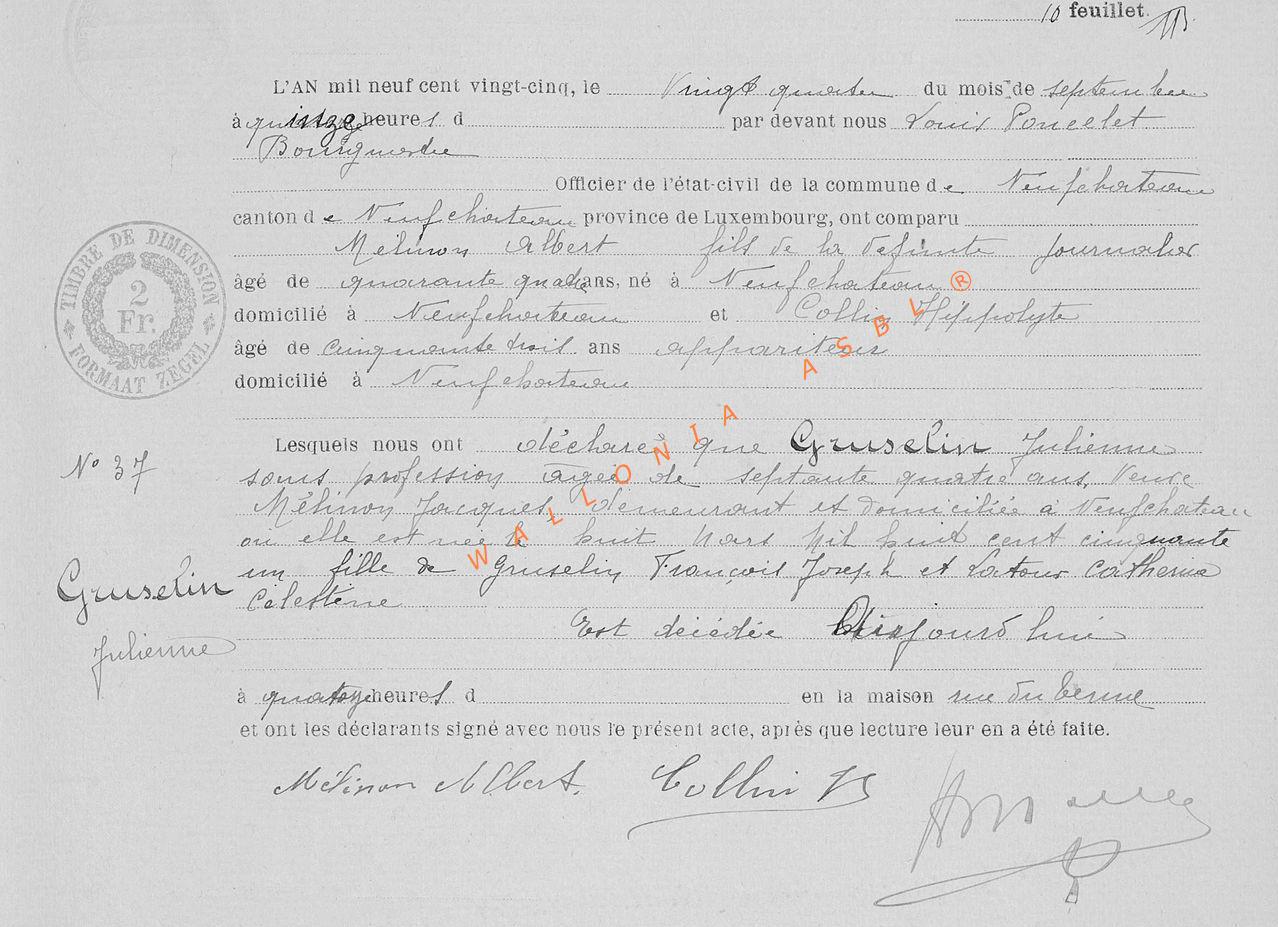 10 feuillet.
L'AN mil neuf cent vingt-cinq, le Vingt quatre du mois de septembre
à quinze heures d par devant nous Louis Poncelet
Bourgmestre
Officier de l'état-civil de la commune de Neufchateau
canton de Neufchateau province de Luxembourg, ont comparu
Mélinon Albert fils de la defunte Journalier
âgé de quarante quatre ans, né à Neufchateau
domicilié à Neufchateau et Collin Hippolyte
âgé de cinquante trois ans appariteur
domicilié à Neufchateau
Lesquels nous ont déclaré que Gruselin Julienne
sans profession agée de septante quatre ans, Veuve
Mélinon Jacques, demeurant et domiciliée à Neufchateau
ou elle est née le huit Mars Mil huit cent cinquante
un fille de Gruselin François Joseph et Latour Catherine
Célestine
Est décédée Aujourd'hui
à quatorze heures d en la maison rue du Terme
et ont les déclarants signé avec nous le présent acte, après que lecture leur en a été faite.
Mélinon Albert. Collin H
N° 37
Gruselin
Julienne
TIMBRE DE DIMENSION
2
Fr.
FORMAAT ZEGEL
WALLONIA ASBL®